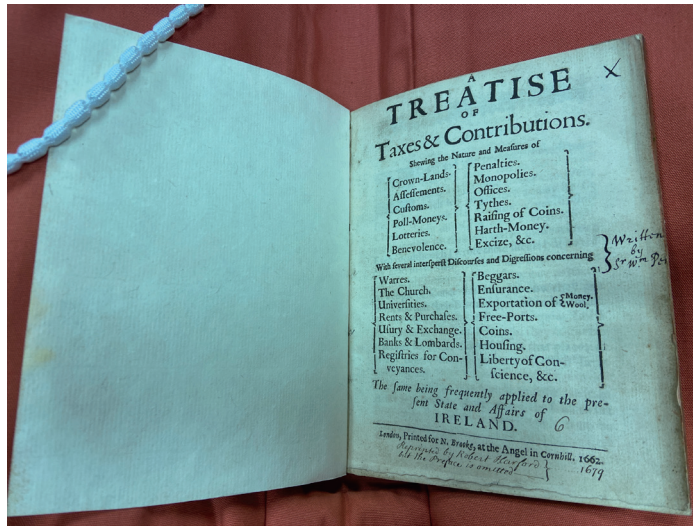 A
TREATISE
OF
Taxes & Contributions.
Shewing the Nature and Meaſures of
Crown-Lands.
Aſſeſſements.
Cuſtoms.
Poll-Moneys.
Lotteries.
Benevolence.
Penalties.
Monopolies.
Offices.
Tythes.
Raiſing of Coins.
Harth-Money.
Excize, &c.
With ſeveral interſperſt Diſcourſes and Digreſſions concerning
Warres.
The Church.
Univerſities.
Rents & Purchaſes.
Uſury & Exchange.
Banks & Lombards.
Regiſtries for Con-
veyances.
Beggars.
Enſurance.
Exportation of {Money.
{Wool.
Free-Ports.
Coins.
Houſing.
Liberty of Con-
ſcience, &c.
Written
by
Sr Wm Pe
The ſame being frequently applied to the pre-
ſent State and Affairs of
IRELAND.
6
London, Printed for N. Brooks, at the Angel in Cornhill. 1662.
Reprinted by Robert Harford
1679
the Preface is omitted
X